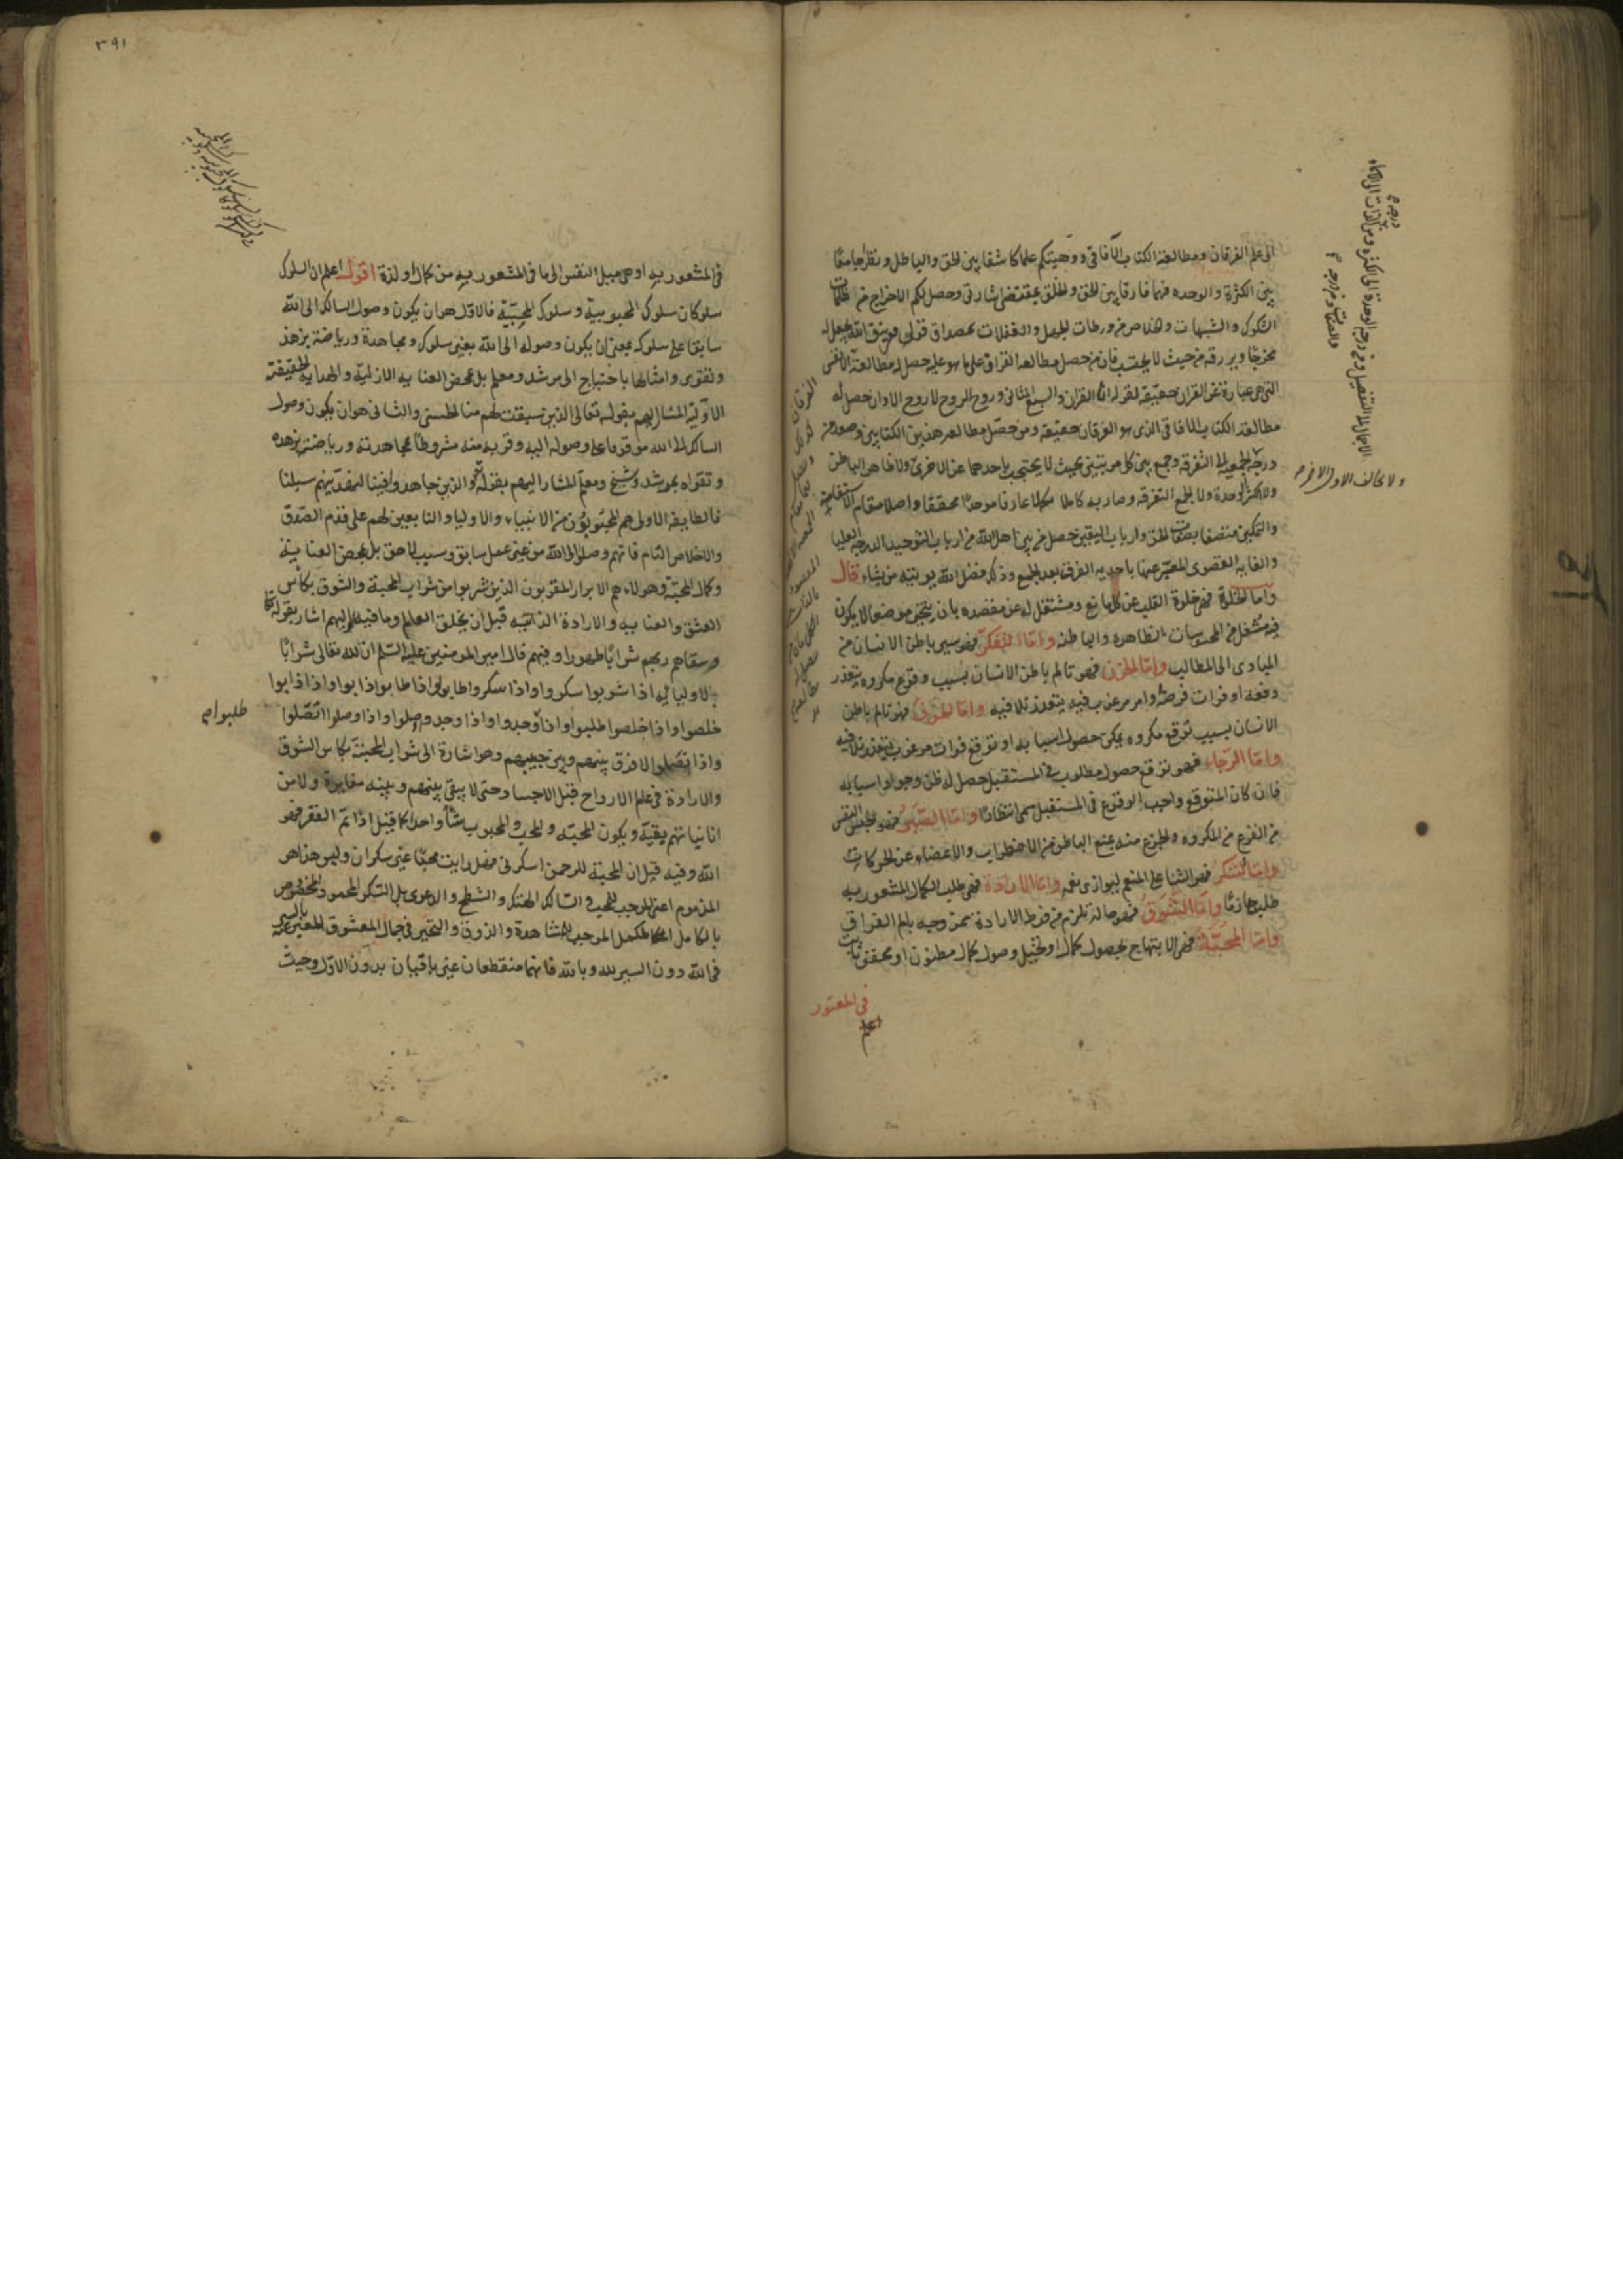 الى علم الفرقان ومطالعة الكتاب الآفاقى ووهبتكم علما كاشفا بين الحق والباطل ونظرا جامعا
بين الكثرة والوحده فهما فارقا بين الحق والخلق بمقتضى اشارتى وحصل لكم الاخراج من ظلمات
الشكوك والشبهات وخلاص من ورطات الجهل والغفلات بمصداق قولى ومن يتق الله يجعل له
مخرجا ويرزقه من حيث لا يحتسب فان من حصل مطالعة القران على ما هو عليه حصل له مطالعة الانفس
التى هى عبارة عن القران حقيقة لقوله انا القران والسبع المثانى وروح الروح لا روح الاوانى حصل له
مطالعة الكتاب الافاقى الذى هو الفرقان حقيقة ومن حصل مطالعة هذين الكتابين وصعد من
درجة الجمعية الى التفرقه وجمع بين كل مرتبتين بحيث لا يحتجب باحدهما عن الاخرى ولا بالظاهر الباطن
ولا بالكثرة الوحدة ولا بالجمع التفرقه وصار به كاملا مكملا عارفا موحدا محققا واصلا مقام الاستقامة
والتمكين متصفا بصفات الحق وارباب اليقين حصل من بين اهل الله من ارباب التوحيد الدرجة العليا
والغاية القصوى المعبر عنها باحدية الفرق بعد الجمع وذلك فضل الله يوتيه من يشاء قال
واما الخلوة فهى خلوة القلب عن كل مانع ومشتغل له عن مقصده بان يتخير موضعا لا يكون
فيه مشتغل من المحسوسات الظاهره والباطنه واما التفكر فهو سير باطن الانسان من
المبادى الى المطالب واما الحزن فهو تالم باطن الانسان بسبب وقوع مكروه يتعذر
دفعه او فوات فرصة او امر مرغوب فيه يتعذر تلافيه واما الخوف فهو تالم باطن
الانسان بسبب توقع مكروه يمكن حصول اسبابه او توقع فوات مرغوب يتعذر تلافيه
واما الرجاء فهو توقع حصول مطلوب فى المستقبل حصل له ظن وجود اسبابه
فان كان المتوقع واجب الوقوع فى المستقبل سمى انتظارا واما الصبر فهو حبس النفس
من الفزع من المكروه والجزع منه بمنع الباطن من الاضطراب والاعضاء عن الحركات
واما الشكر فهو الثنا على المنعم ليوازى نعمه واما الارادة فهى طلب الكمال المشعور به
طلبا جازما واما الشوق فهو حالة تلزم من فرط الارادة ممزوجه بالم الفراق
واما المحبة فهى الابتهاج بحصول كمال او تخيل وصول كمال مظنون او محقق ثابت
فى المشعور
ولا تخالف الاول الاخر
٣٩١
فى المشعور به او هى ميل النفس الى ما فى المشعور به من كمال او لذة اقول اعلم ان السلوك
سلوكان سلوك المحبوبية وسلوك المحبية فالاول هو ان يكون وصول السالك الى الله
سابقا على سلوكه بمعنى ان يكون وصوله الى الله بغير سلوك ومجاهدة ورياضة بزهد
وتقوى وامثالها باحتياج الى مرشد ومعلم بل بمحض العناية الازلية والهداية الحقيقة
الاولية المشار اليهم بقوله تعالى الذين سبقت لهم منا الحسنى والثانى هو ان يكون وصول
السالك الى الله موقوفا على وصوله اليه وقربه منه مشروطا بمجاهدته ورياضته بزهده
وتقواه بمرشد وشيخ ومعلم المشار اليهم بقوله تعالى والذين جاهدوا فينا لنهدينهم سبلنا
فالطايفة الاولى هم المحبوبون من الانبياء والاوليا والتابعين لهم على قدم الصدق
والاخلاص التام فانهم وصلوا الى الله من غير عمل سابق وسبب لاحق بل بمحض العناية
وكمال المحبة وهولاء هم الابرار المقربون الذين شربوا من شراب المحبة والشوق بكأس
العشق والعناية والارادة الذاتيه قبل ان يخلق العالم وما فيه واليهم اشار بقوله تعالى
وسقاهم ربهم شرابا طهورا وفيهم قال امير المومنين عليه السلم ان لله تعالى شرابا
لاوليائه اذا شربوا سكروا واذا سكروا طابوا واذا طابوا ذابوا واذا ذابوا
خلصوا واذا خلصوا طلبوا واذا وجدوا واذا وجدوا وصلوا واذا وصلوا اتصلوا
واذا اتصلوا لا فرق بينهم وبين حبيبهم وهو اشارة الى شراب المحبة بكاس الشوق
والارادة فى علم الارواح قبل الاجساد حتى لا يبقى بينهم وبينه مغايرة ولا من
انانياتهم بقية ويكون المحبة والمحب والمحبوب شيأ واحدا كما قيل اذا تم الفقر فهو
الله وفيه قيل ان المحبة للرحمن اسكرنى فهل رايت محبا غير سكران وليس هذا هو
المذموم اعنى الموجب للحجب فى السالك الهتك والشطح والدعوى بل السكر المحمود المخصوص
بالكامل المكمل الموجب للمشاهدة والذوق والتحير فى جمال المعشوق المعبر عنه بالسير
فى الله دون السير لله وبالله فانهما منقطعان غير باقيان بدون الاول وحيث
طلبوا صح